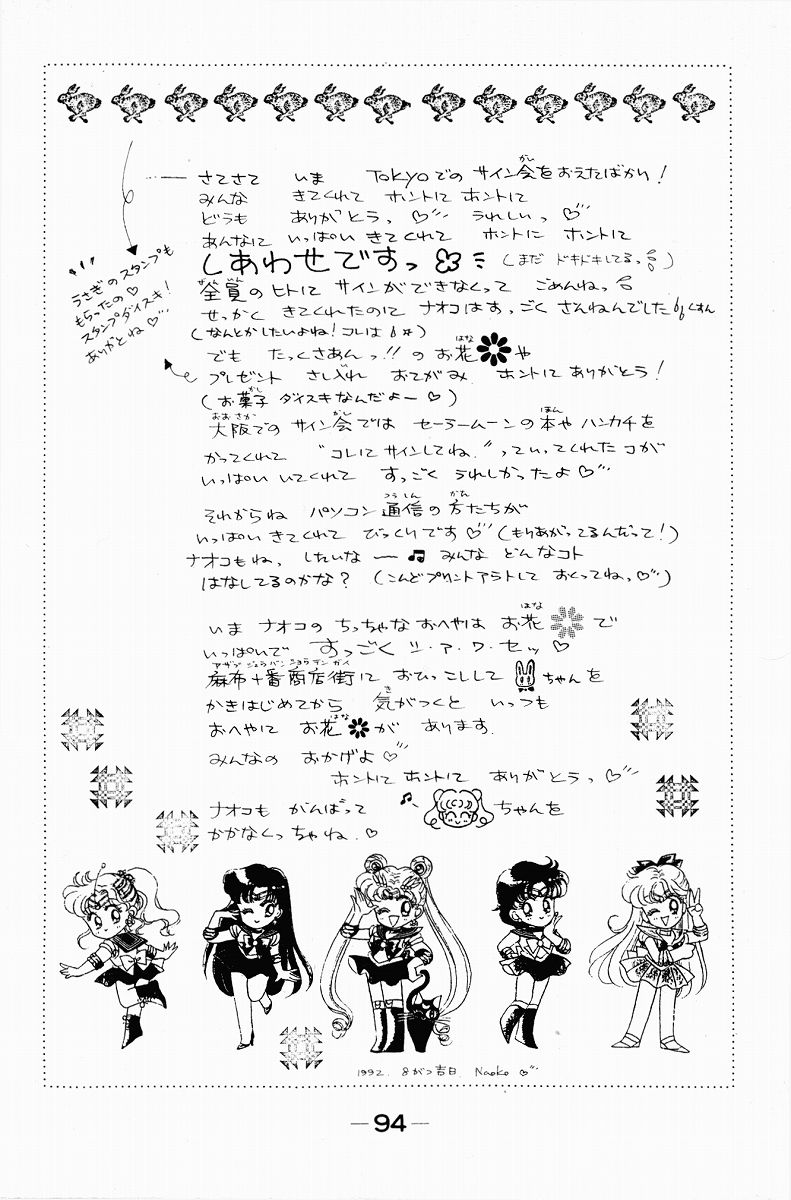 さてさて いま Tokyoでの サイン会をおえたばかり!
みんな きてくれて ホントに ホントに
どうも ありがとうっ♡ うれしいっ♡
あんなに いっぱい きてくれて ホントに ホントに
しあわせですっ (まだ ドキドキしてるっ)
全員のヒトに サインができなくって ごめんねっ
せっかく きてくれたのに ナオコはすっごく ざんねんでした くすん
(なんとかしたいよね!コレは)
うさぎのスタンプも
もらったの♡
スタンプダイスキ!
ありがとね♡
でも たっくさあんっ!!の お花や
プレゼント さし入れ おてがみ ホントに ありがとう!
(お菓子 ダイスキなんだよー♡)
大阪での サイン会では セーラームーンの本や ハンカチを
かってくれて “コレにサインしてね。”っていってくれたコが
いっぱい いてくれて すっごく うれしかったよ♡
それからね パソコン通信の方たちが
いっぱい きてくれて びっくりです♡(もりあがってるんだって!)
ナオコもね、 したいな 〜♫ みんな どんなコト
はなしてるのかな? (こんどプリントアウトして おくってねっ♡)
いま ナオコの ちっちゃな おへやは お花で
いっぱいで すっごく シ・ア・ワ・セッ♡
麻布十番商店街に おひっこしして ちゃんを
かきはじめてから 気がつくと いっつも
おへやに お花が あります.
みんなの おかげよ♡
ホントに ホントに ありがとうっ♡
ナオコも がんばって ♪ ちゃんを
かかなくっちゃね.♡
1992. 8がつ吉日. Naoko ♡
—94—